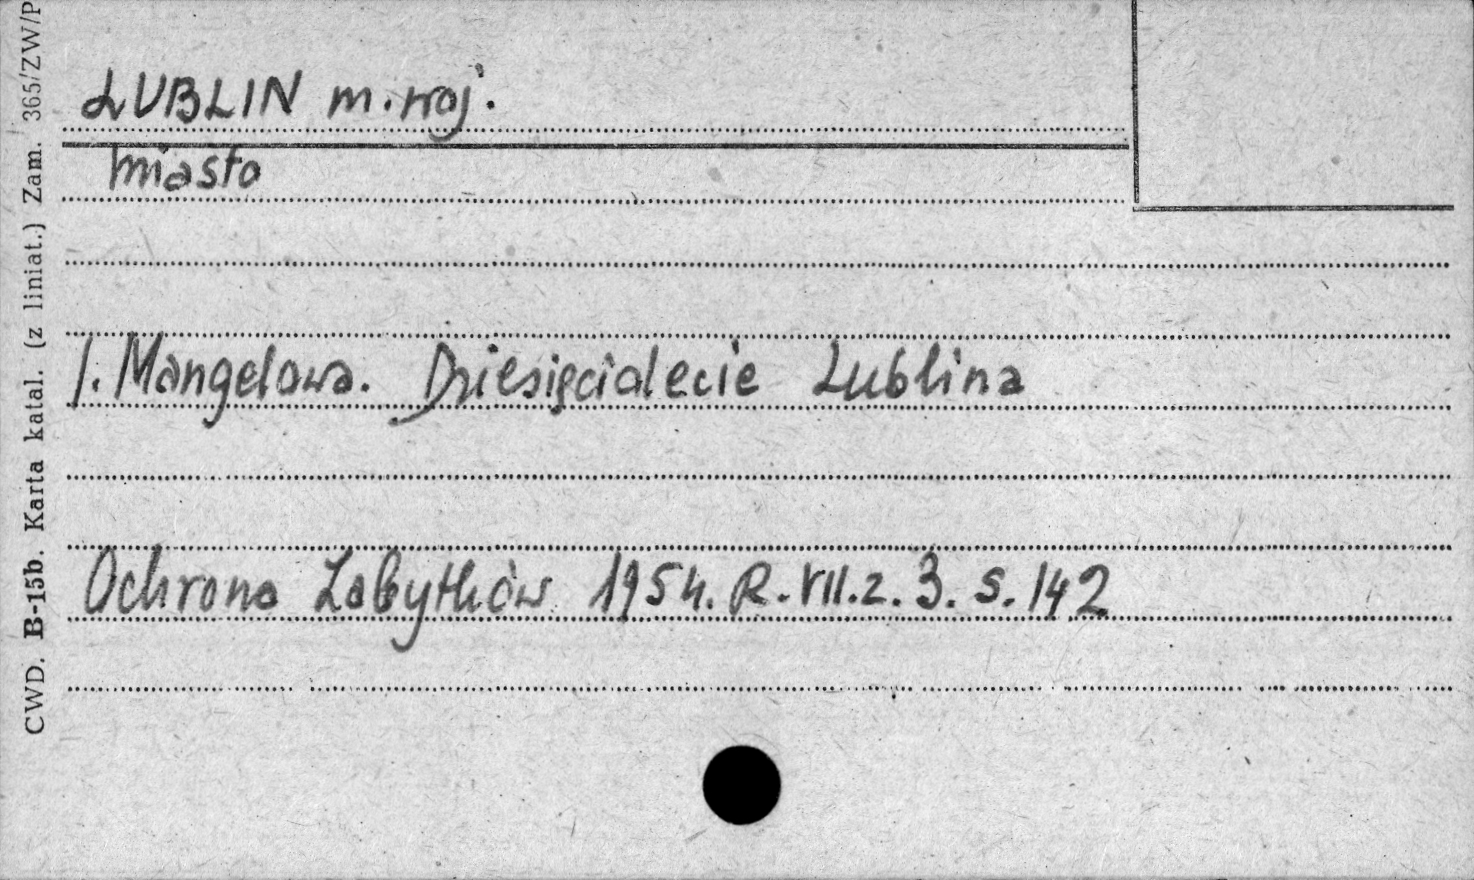 LUBLIN m. woj.
miasto
I. Mangelowa. Dziesięciolecie Lublina
Ochrona Zabytków 1954. R. VII. z. 3. s. 142
CWD. B-15b. Karta katal. (z liniat.) Zam. 365/ZW/P